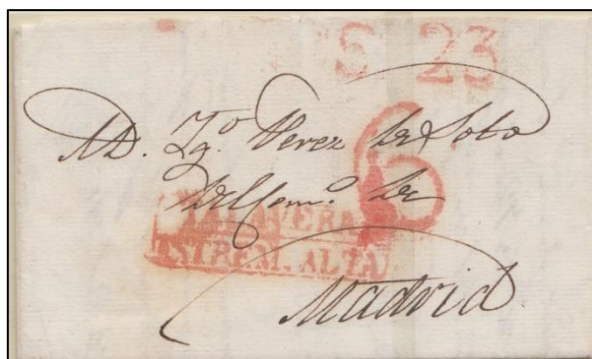 S. 23
A D. Yg.º Perez de Soto
6
del Com.º de
TALAVERA
ESTREM. ALTA
Madrid